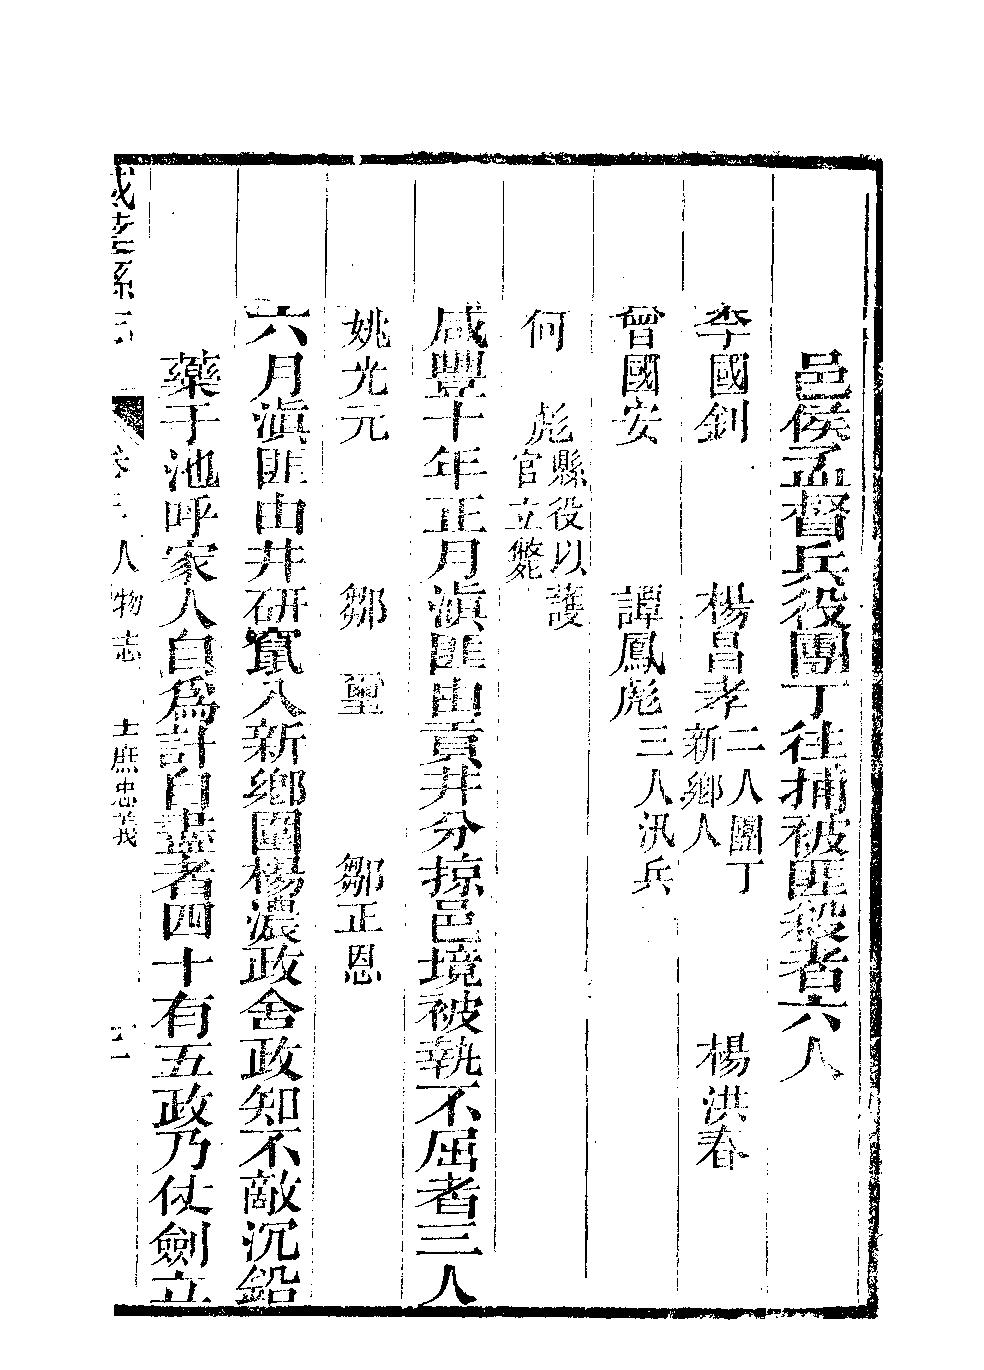 邑侯孟督兵役團丁往捕被匪殺者六人
李國釗 楊昌孝二人團丁新鄉人 楊洪春
曾國安 譚鳳彪三人汛兵
何 彪縣役以護官立斃
咸豐十年正月滇匪由貢井分掠邑境被執不屈者三人
姚光元 鄒 璽 鄒正恩
六月滇匪由井研竄入新鄉圍楊濃政舍政知不敵沉鉛
藥于池呼家人自爲計自盡者四十有五政乃仗劍立
縣志 人物志 士庶忠義